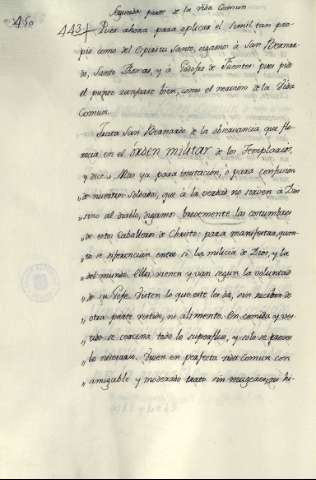 450
Segunda parte de la Vida Comun
443 Pues ahora para aplicar el simil tan pro-
pio como del Espiritu Santo, oigamos à San Bernar-
do, Santo Thomas, y à de Fuentes: pues pide
el punto bien, como el meollo de la Vida
Comun.
Trata San Bernardo de la observancia que flo-
recia en el órden militar de los Templarios,
y dice: Mas ya para imitacion, ò para confusion
de nuestros Soldados, que à la verdad no sirven à Dios
sino al diablo, digamos brevemente las costumbres
de estos Caballeros de Christo: para manifestar, quan-
to se diferencian entre si la milicia de Dios, y la
del mundo. Ellos vienen y van segun la voluntad
de su Gefe. Visten lo que este les dà, sin recibir de
otra parte vestido, ni alimento. En comida y ves-
tido se todo lo superfluo, y solo se provee
lo necesario. Viven en perfecta vida Comun con
amigable y moderado trato sin mugeres, ni hi-